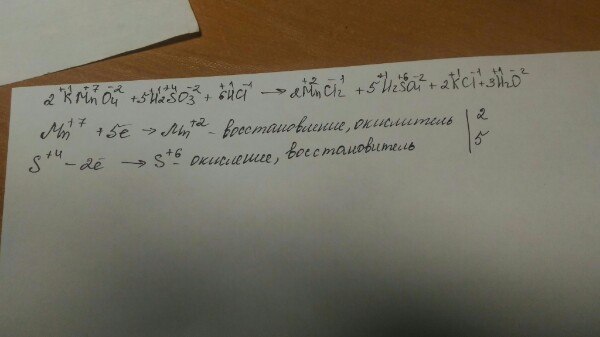 2K⁺¹Mn⁺⁷O₄⁻² + 5H₂⁺¹S⁺⁴O₃⁻² + 6H⁺¹Cl⁻¹ → 2Mn⁺²Cl₂⁻¹ + 5H₂⁺¹S⁺⁶O₄⁻² + 2K⁺¹Cl⁻¹ + 3H₂⁺¹O⁻²
Mn⁺⁷ + 5e̅ → Mn⁺² - восстановление, окислитель | 2
S⁺⁴ - 2e̅ → S⁺⁶ - окисление, восстановитель | 5